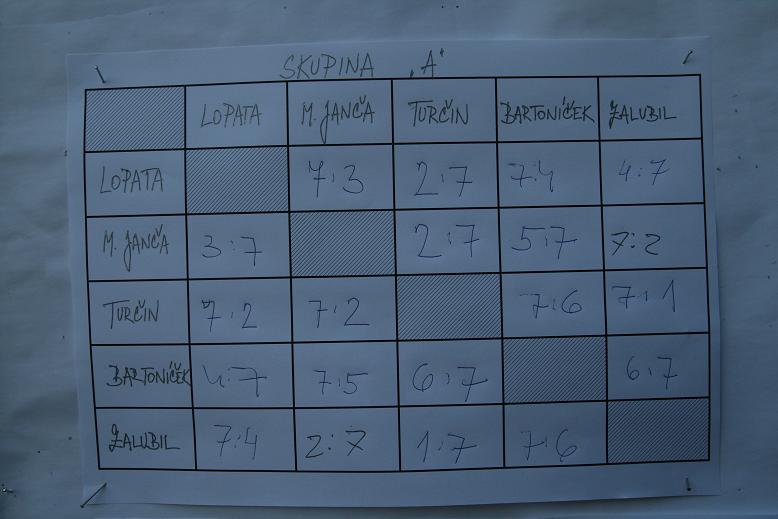 SKUPINA „A"
LOPATA M. JANČA TURČIN BARTONÍČEK ŽALUBIL
LOPATA 7:3 2:7 7:4 4:7
M. JANČA 3:7 2:7 5:7 7:2
TURČIN 7:2 7:2 7:6 7:1
BARTONÍČEK 4:7 7:5 6:7 6:7
ŽALUBIL 7:4 2:7 1:7 7:6